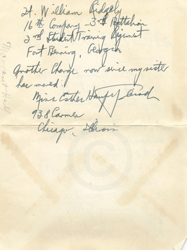 Lt. William Ridgely
16th Company - 3rd Battalion
2nd Student Training Regiment
Fort Benning, Georgia
Another change now since my sister
has moved.
Miss Esther
938
Chicago, Illinois